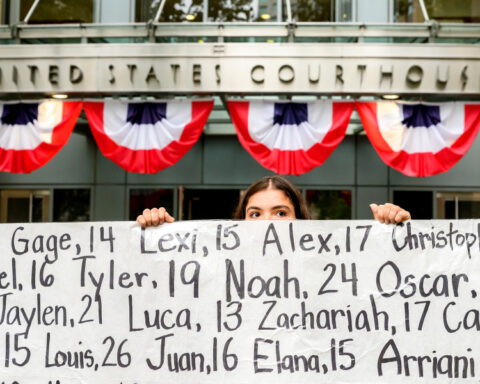 UNITED STATES COURTHOUS
Gage, 14 Lexi, 15 Alex, 17 Christoph
el, 16 Tyler, 19 Noah, 24 Oscar,
Jaylen, 21 Luca, 13 Zachariah, 17 Ca
15 Louis, 26 Juan, 16 Elana, 15 Arriani